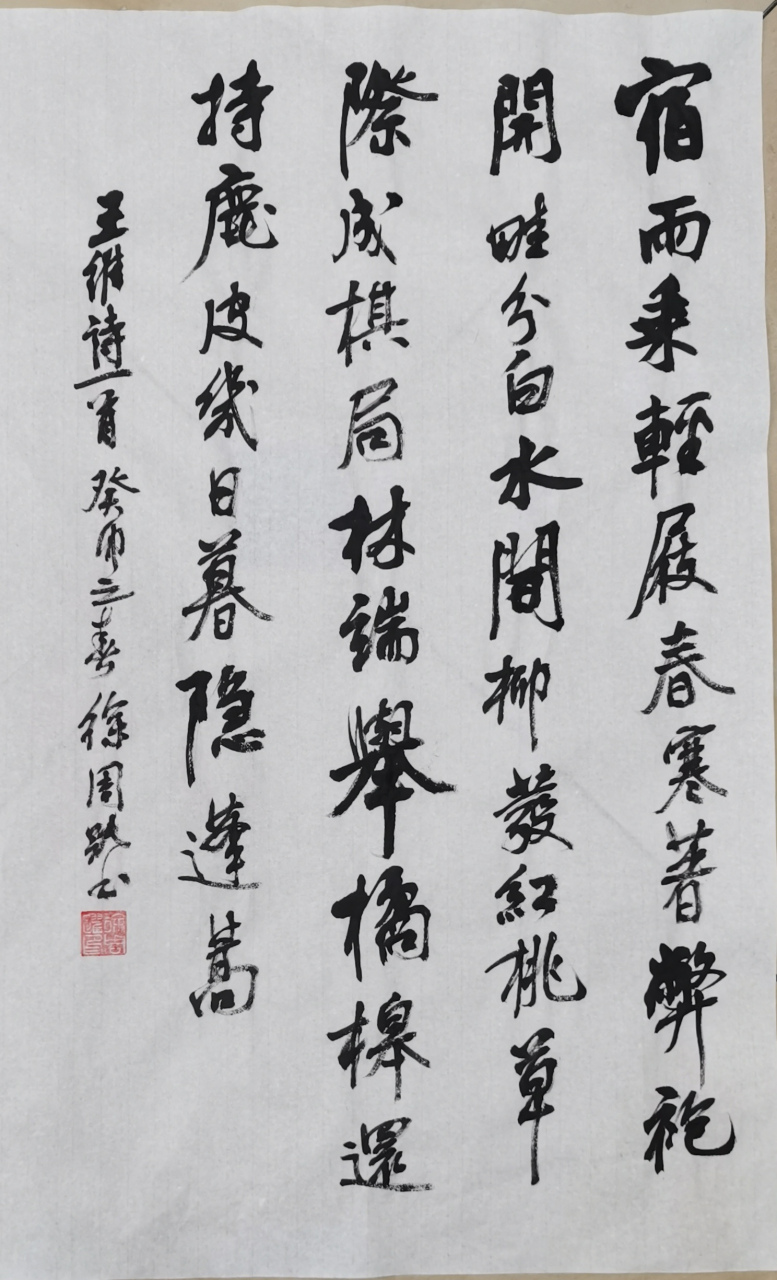 宿雨乘輕屐春寒著弊袍
開畦分白水間柳發紅桃草
際成棋局林端舉橘槔還
持鹿皮幾日暮隐蓬蒿
王維詩一首 癸卯春 徐周書